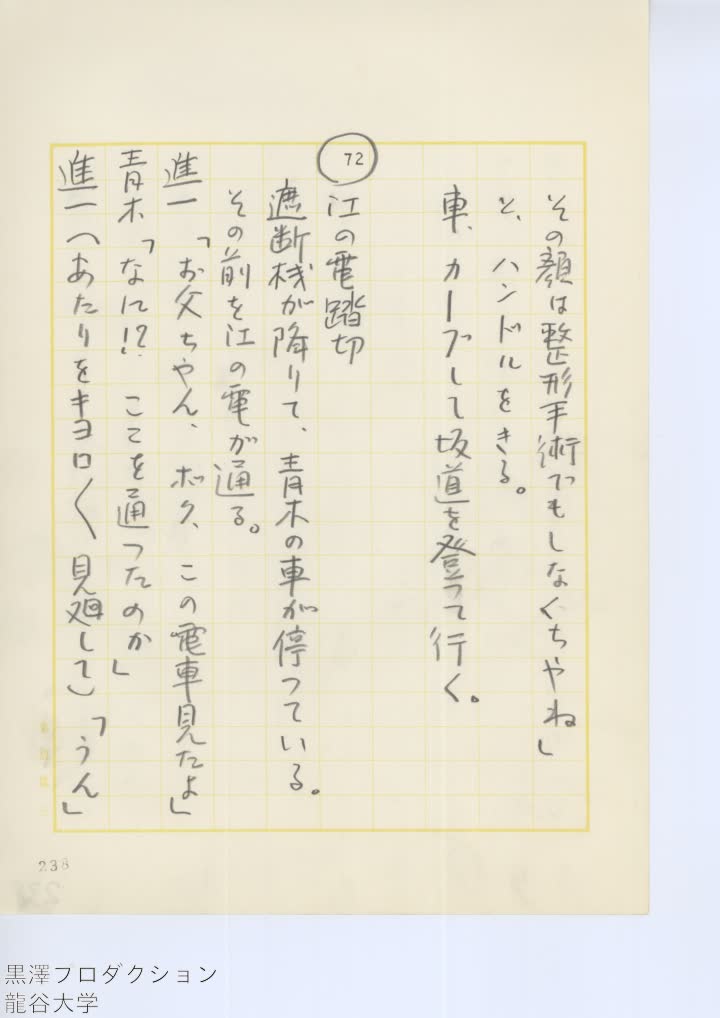 その顔は整形手術でもしなくちやね」
と、ハンドルをきる。
車、カーブして坂道を登つて行く。
72
江の電踏切
遮断機が降りて、青木の車が停つている。
その前を江の電が通る。
進一「お父ちやん、ボク、この電車見たよ」
青木「なに!? ここを通つたのか」
進一(あたりをキヨロ〱見廻して)「うん」
238
黒澤プロダクション
龍谷大学